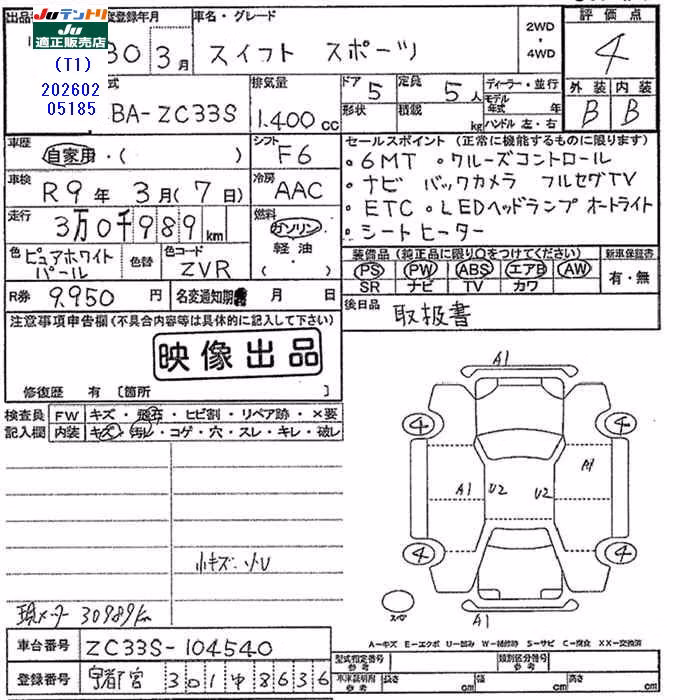 Juテントリ
Ju
適正販売店
(T1)
202602
05185
出品
登録年月
30 3月
車名・グレード
スイフト スポーツ
2WD
・
4WD
評価点
4
外装 内装
B B
BA-ZC33S
排気量
1.400cc
ドア 5
形状
定員 5人
積載 kg
ディーラー・並行
モデル年式 年
ハンドル 左・右
車歴
自家用・( )
シフト
F6
車検
R9年 3月(7日)
冷房
AAC
走行
3万0千989km
燃料
ガソリン
軽油
( ・ )
色 ピュアホワイトパール
色替
色コード
ZVR
セールスポイント (正常に機能するものに限ります)
・6MT ・クルーズコントロール
・ナビ バックカメラ フルセグTV
・ETC ・LEDヘッドランプ オートライト
・シートヒーター
装備品(純正品に限り○をつけてください)
PS PW ABS エアB AW
SR ナビ TV カワ
新車保証書
有・無
R券 9,950円
名変通知期 月 日
後日品
取扱書
注意事項申告欄(不具合内容等は具体的に記入して下さい)
映像出品
修復歴 有 〔箇所 〕
検査員
記入欄
FW キズ・飛石・ヒビ割・リペア跡・×要
内装 キズ・汚レ・コゲ・穴・スレ・キレ・破レ
小キズ・小U
現メーター 30989km
A1
4 4
A1 U2 U2 A1
4 4
スペア
A1
A-キズ E-エクボ U-凹み W-補修跡 S-サビ C-腐食 XX-交換済
車台番号 ZC33S-104540
登録番号 宇都宮 301 ゆ 8636
型式指定番号
参考
類別区分番号
参考
車庫証明用
参考
長さ cm
幅 cm
高さ cm